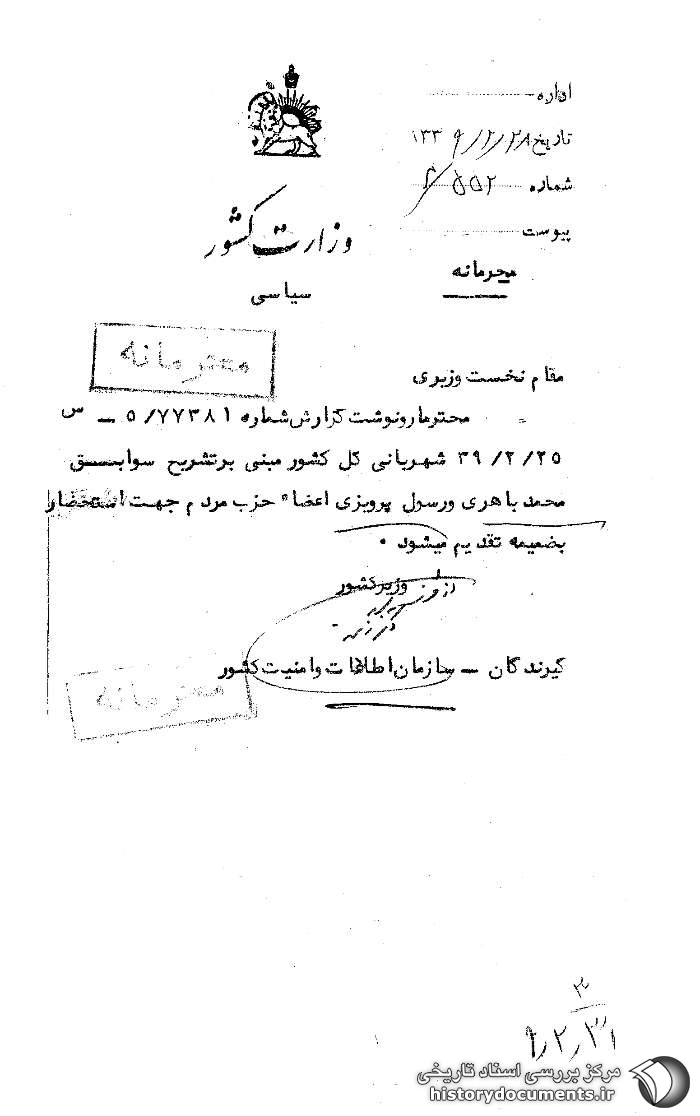 اداره
تاریخ ۱۳۳۹/۲/۲۸
شماره ۵۵۲
پیوست
محرمانه
وزارت کشور
سیاسی
محرمانه
مقام نخست وزیری
محترما رونوشت گزارش شماره ۵/۷۷۳۸۱ ــ س
۳۹/۲/۲۵ شهربانی کل کشور مبنی برتشریح سوابق
محمد باهری ورسول پرویزی اعضاء حزب مردم جهت استحضار
بضمیمه تقدیم میشود .
وزیر کشور
از طرف
گیرندگان ــ سازمان اطلاعات وامنیت کشور
محرمانه
۳
مرکز بررسی اسناد تاریخی
historydocuments.ir